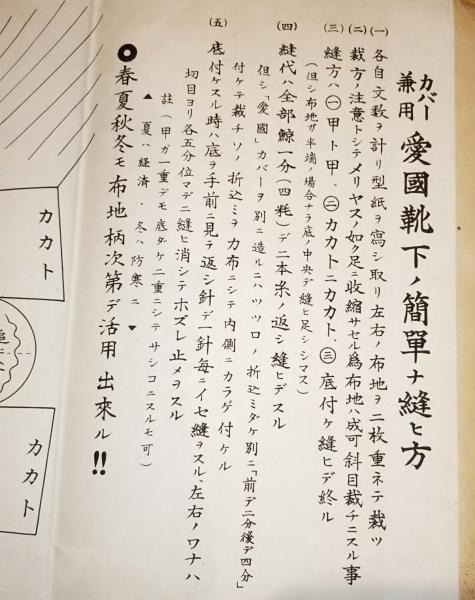 カバー兼用 愛國靴下ノ簡單ナ縫ヒ方
(一) 各自文数ヲ計リ型紙ヲ寫シ取リ左右ノ布地ヲ二枚重ネテ裁ツ
(二) 裁方ノ注意トシテメリヤスノ如ク足ニ收縮サセル爲布地ハ成可斜目裁チニスル事
(三) 縫方ハ㊀甲ト甲、㊁カカトニカカト、㊂底付ケ縫ヒデ終ル
(但シ布地ガ半端ノ場合ナラ底ノ中央デ縫ヒ足シシマス)
(四) 縫代ハ全部鯨一分(四粍)デ二本糸ノ返シ縫ヒデスル
但シ「愛國」カバーヲ別ニ造ルニハツツロノ折込ミダケ別ニ「前デ二分後デ四分」
付ケテ裁チソノ折込ミヲ力布ニシテ内側ニカラゲ付ケル
(五) 底付ケスル時ハ底ヲ手前ニ見テ返シ針デ一針毎ニイセ縫ヲスル、左右ノワナハ
切目ヨリ各五分位マデニ縫ヒ消シテホズレ止メヲスル
註(甲ガ一重デモ底ダケ二重ニシテサシコニスルモ可)
▲ 夏ハ経済、冬ハ防寒ニ ▼
◉ 春夏秋冬モ布地柄次第デ活用出來ル!!
カカト
カカト